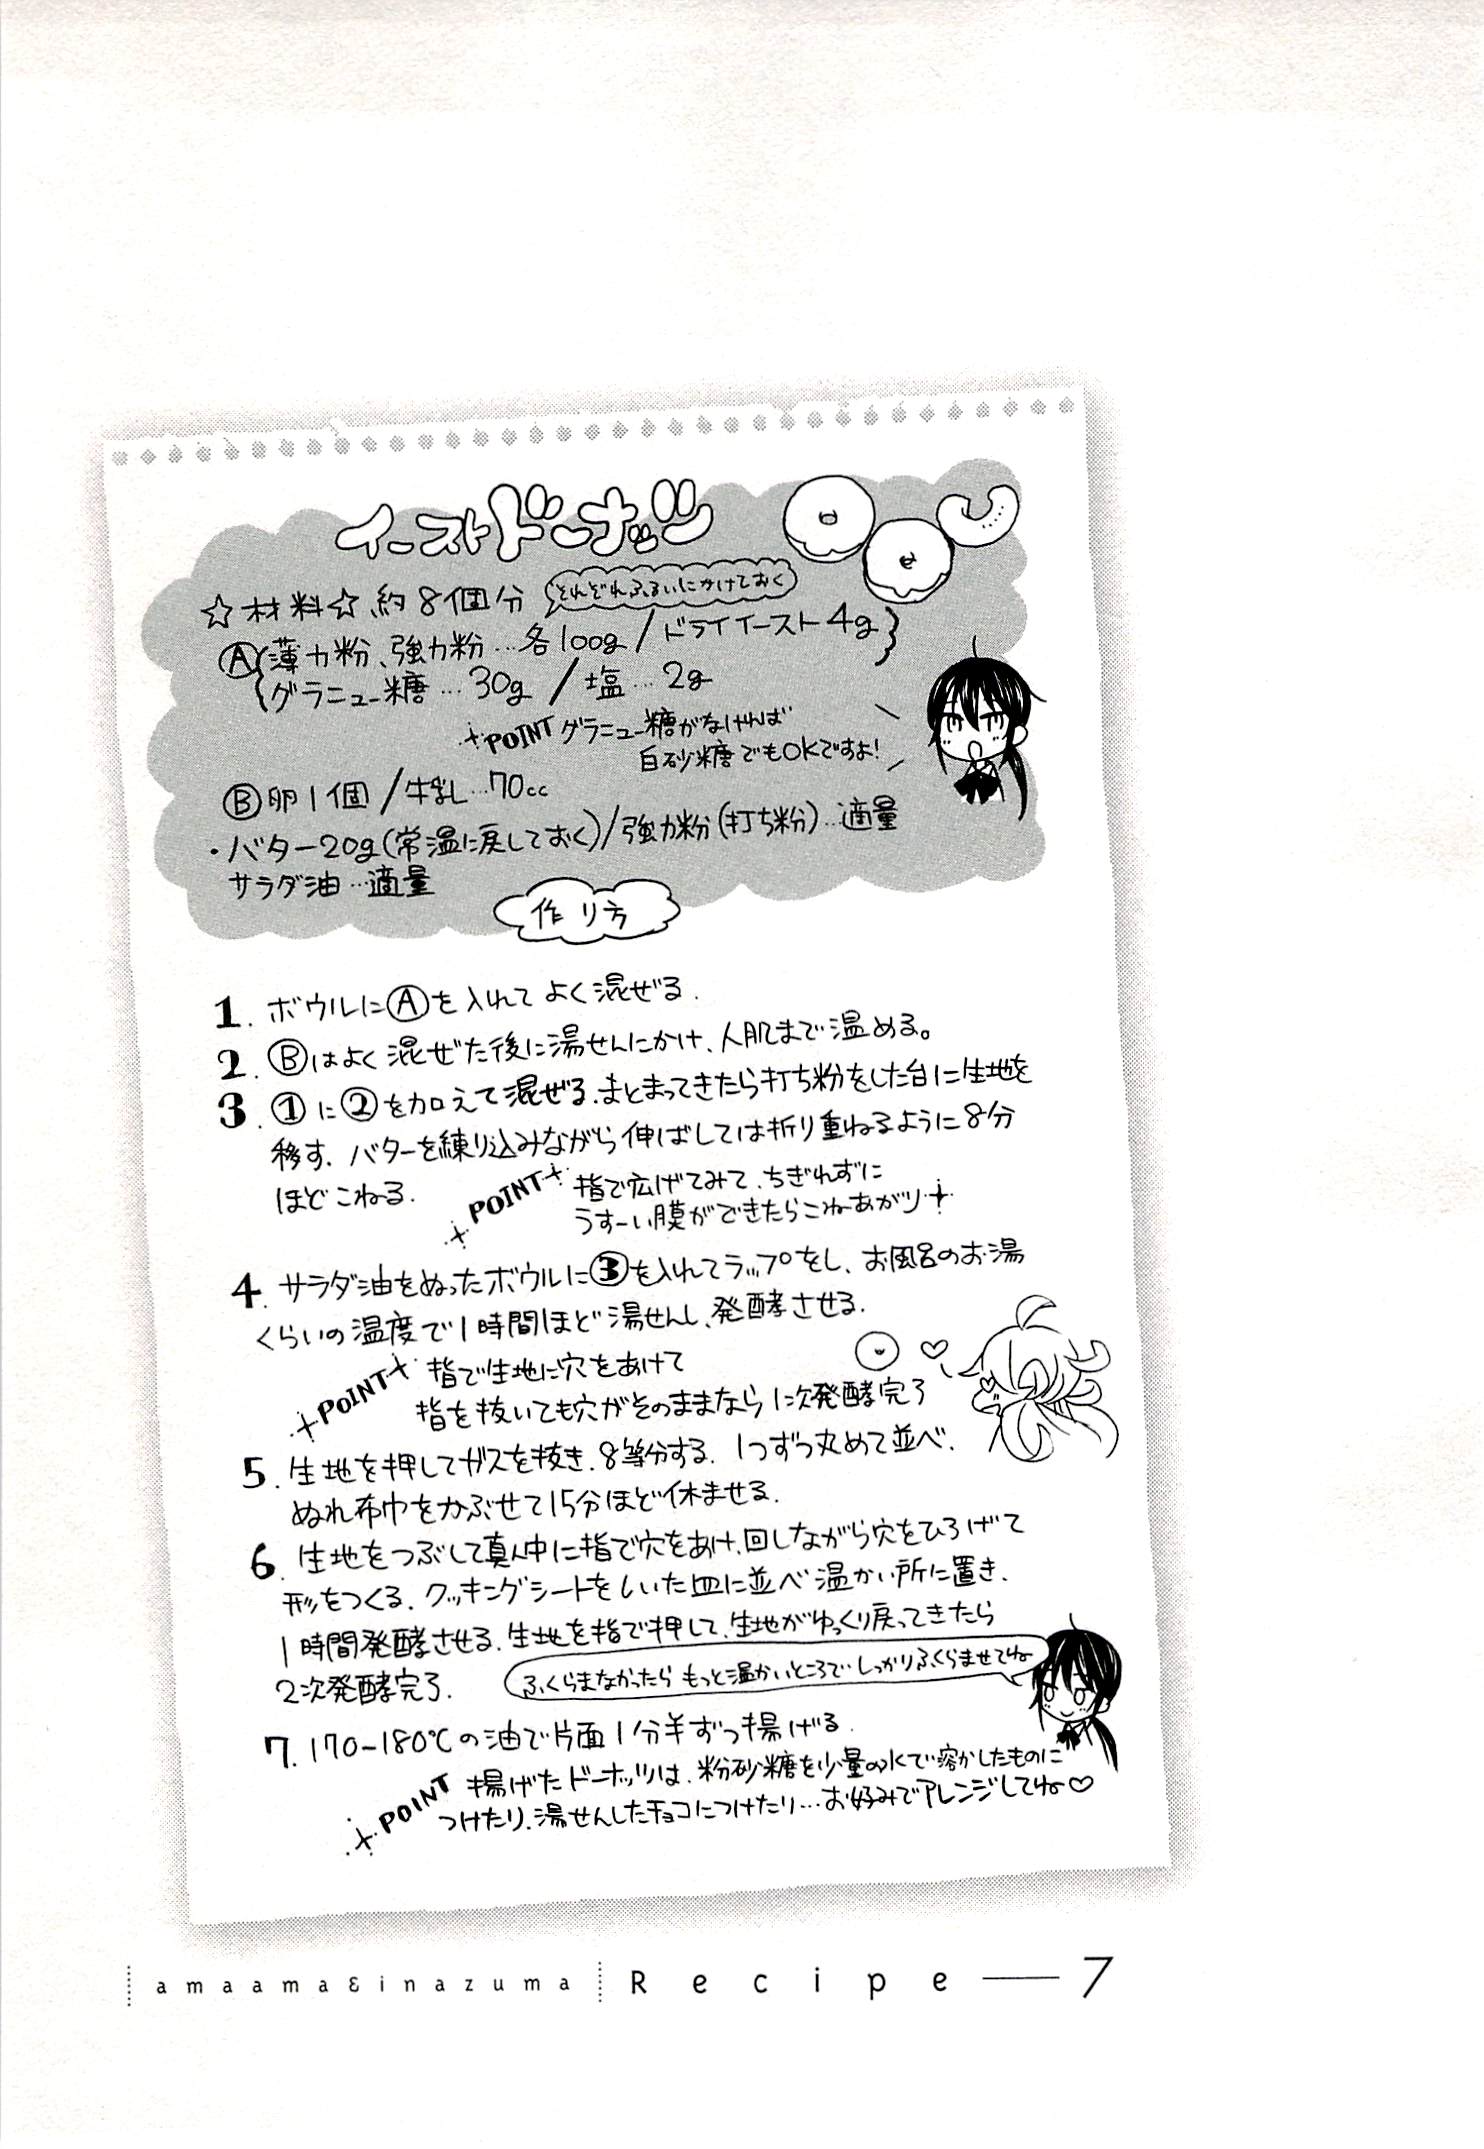 イーストドーナッツ
☆材料☆ 約8個分 それぞれふるいにかけておく
Ⓐ 薄力粉、強力粉…各100g / ドライイースト4g
グラニュー糖…30g / 塩…2g
POINT グラニュー糖がなければ
白砂糖でもOKですよ!
Ⓑ 卵1個 / 牛乳…70cc
・バター20g(常温に戻しておく)/強力粉(打ち粉)…適量
サラダ油…適量
作り方
1. ボウルにⒶを入れてよく混ぜる.
2. Ⓑはよく混ぜた後に湯せんにかけ、人肌まで温める。
3. ①に②を加えて混ぜる.まとまってきたら打ち粉をした台に生地を
移す. バターを練り込みながら伸ばしては折り重ねるように8分
ほどこねる.
POINT 指で広げてみて、ちぎれずに
うすーい膜ができたらこねあがり
4. サラダ油をぬったボウルに③を入れてラップをし、お風呂のお湯
くらいの温度で1時間ほど湯せんし、発酵させる.
POINT 指で生地に穴をあけて
指を抜いても穴がそのままなら1次発酵完了
5. 生地を押してガスを抜き、8等分する. 1つずつ丸めて並べ、
ぬれ布巾をかぶせて15分ほど休ませる.
6. 生地をつぶして真ん中に指で穴をあけ、回しながら穴をひろげて
形をつくる. クッキングシートをしいた皿に並べ温かい所に置き、
1時間発酵させる. 生地を指で押して、生地がゆっくり戻ってきたら
2次発酵完了.
ふくらまなかったら もっと温かいところで しっかりふくらませてね
7. 170~180℃の油で片面1分半ずつ揚げる.
POINT 揚げたドーナッツは、粉砂糖を少量の水で溶かしたものに
つけたり、湯せんしたチョコにつけたり…お好みでアレンジしてね♡
amaama&inazuma Recipe — 7